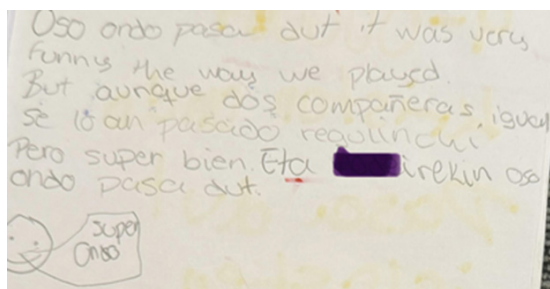 Oso ondo pasa dut it was very
funny the way we played.
But aunque dos compañeras, igual
se lo an pasado regulinchi
Pero super bien. Eta irekin oso
ondo pasa dut.
Super
Ondo